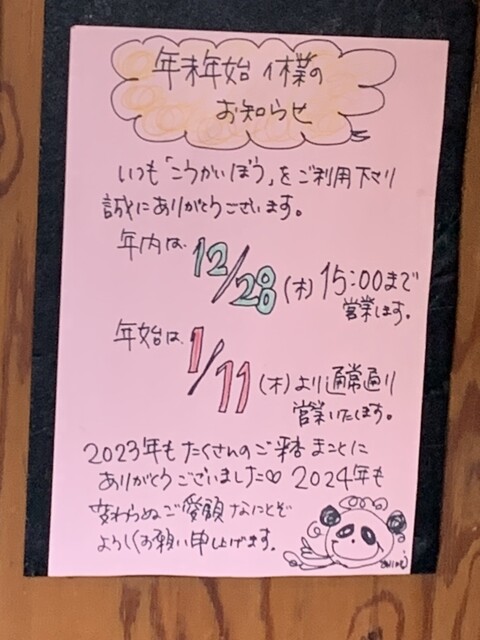 年末年始 休業の
お知らせ
いつも「こうかいぼう」をご利用下さり
誠にありがとうございます。
年内は 12/28(木) 15:00まで
営業します。
年始は 1/11(木)より通常通り
営業いたします。
2023年もたくさんのご来店まことに
ありがとうございました♡ 2024年も
変わらぬご愛顧なにとぞ
よろしくお願い申し上げます。